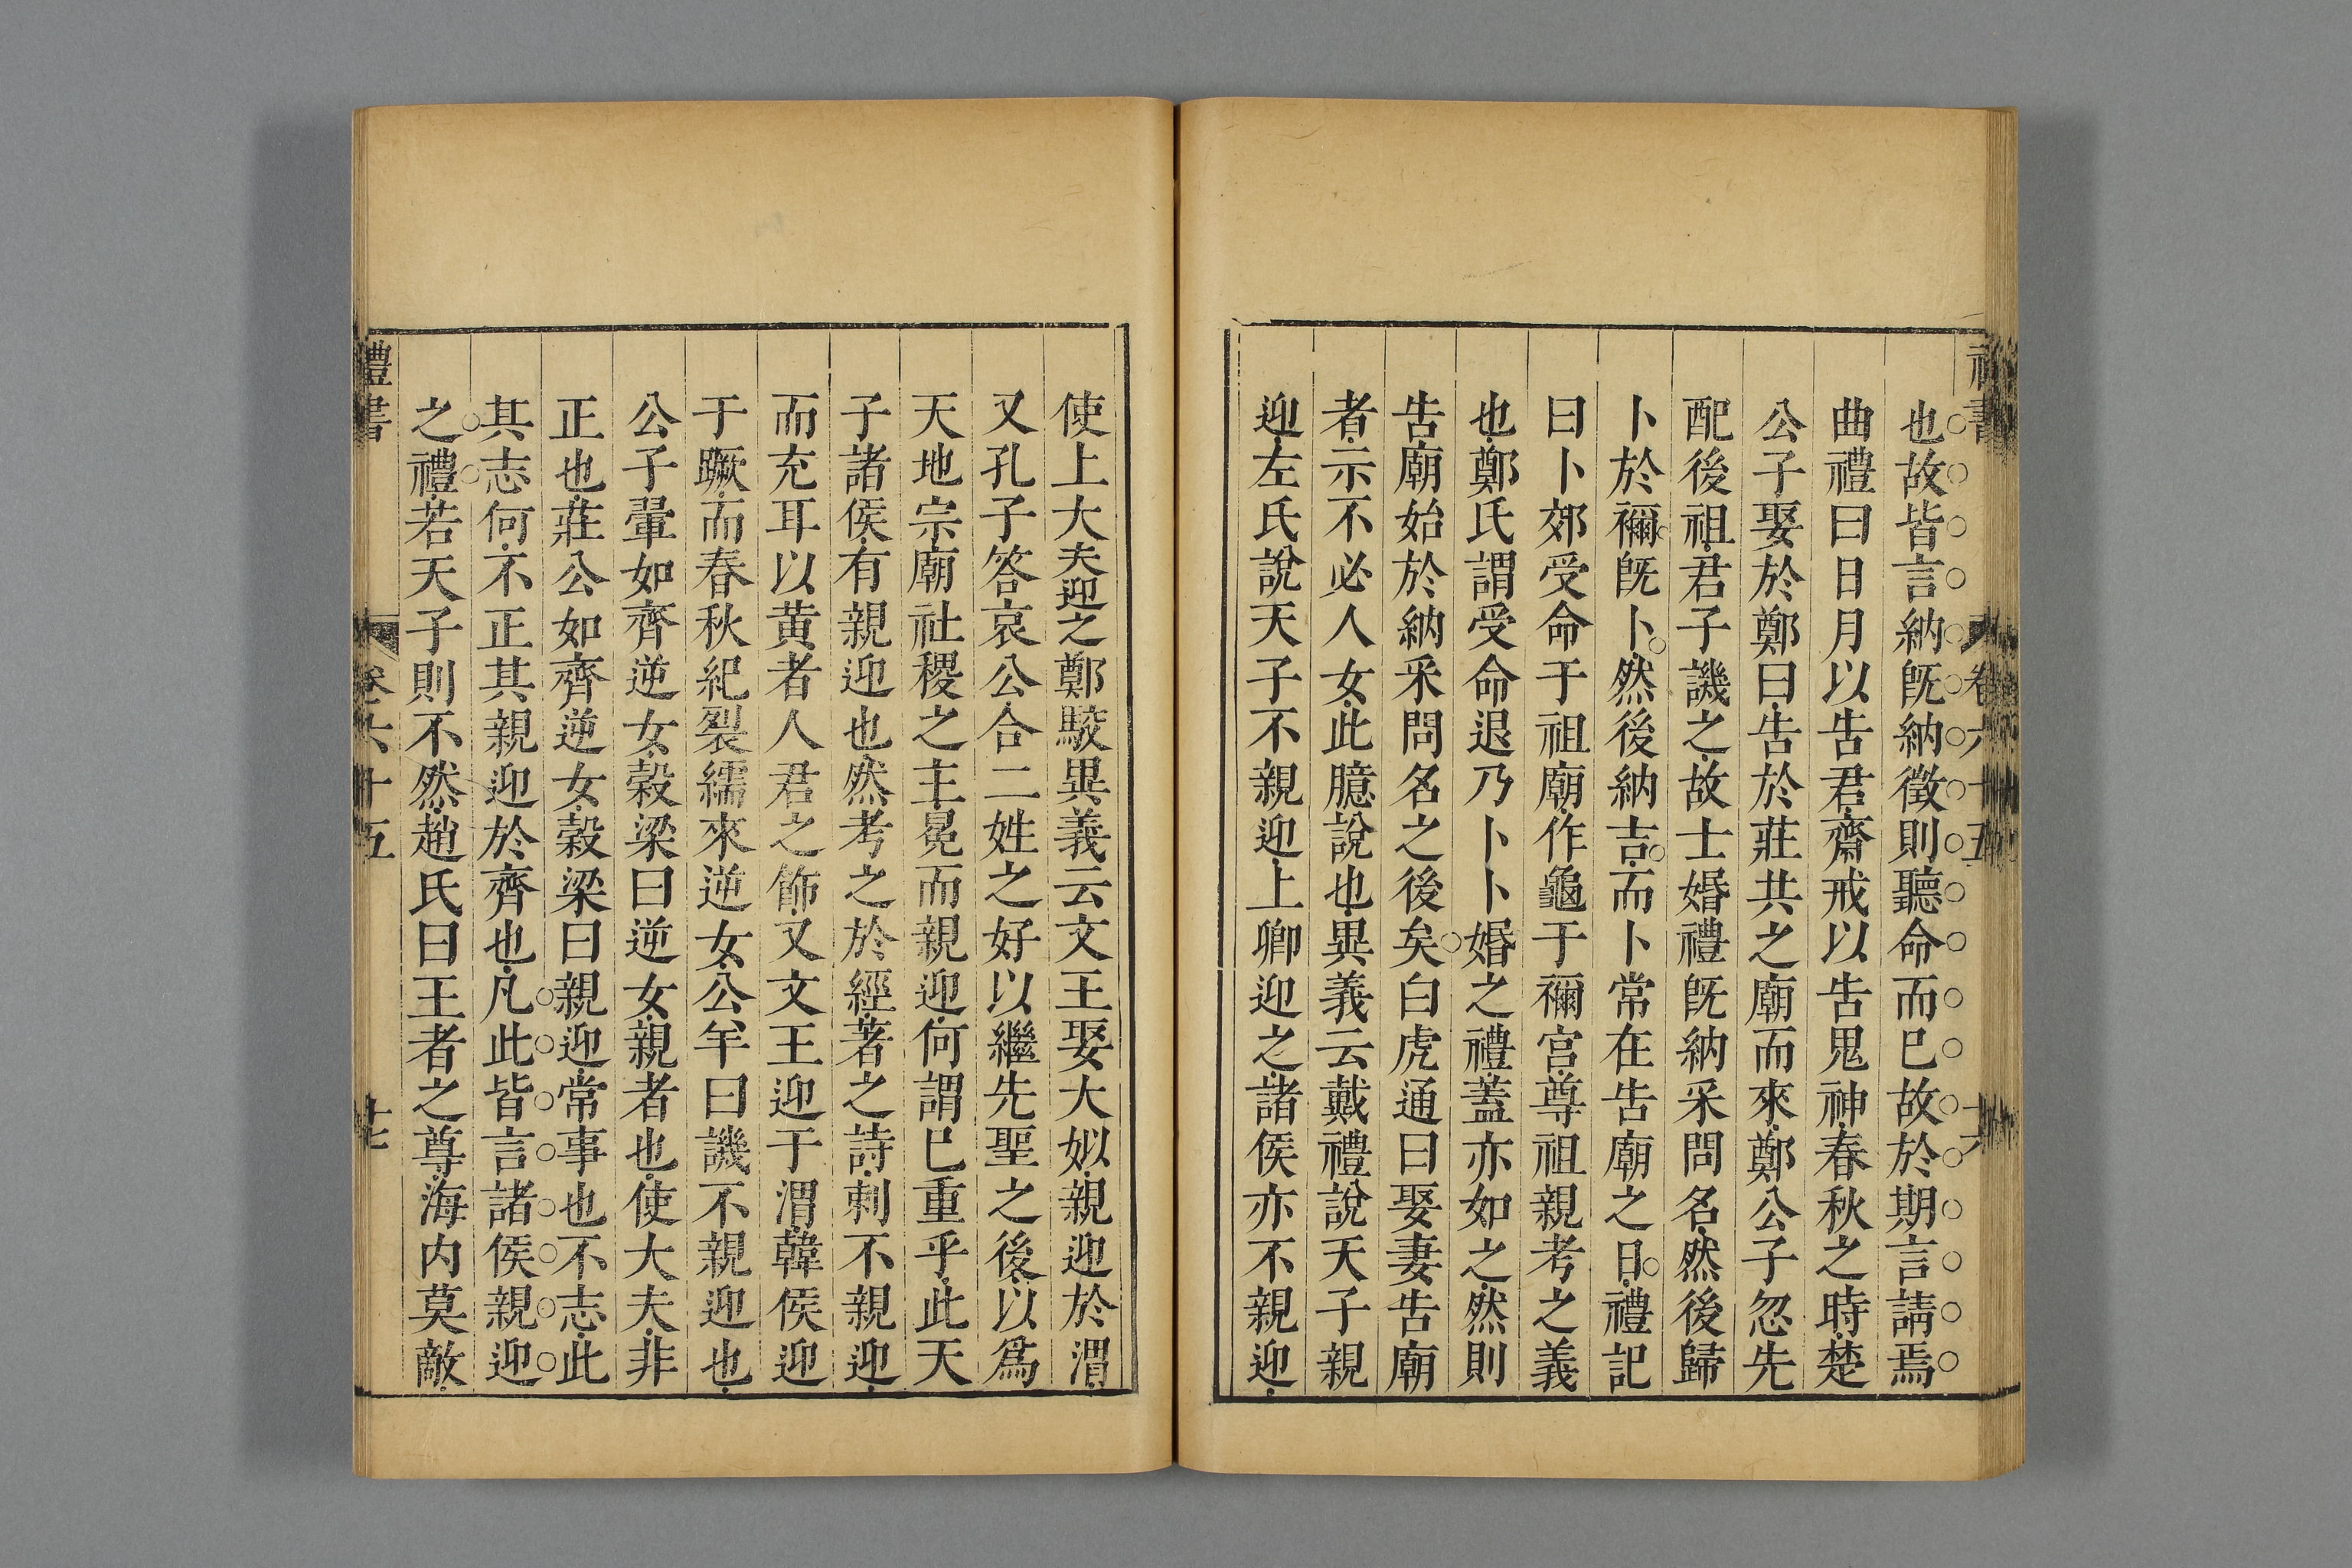 禮書 卷六十五 十六
也故皆言納旣納徵則聽命而已故於期言請焉
曲禮曰日月以告君齋戒以告鬼神春秋之時楚
公子娶於鄭曰告於莊共之廟而來鄭公子忽先
配後祖君子譏之故士婚禮旣納采問名然後歸
卜於禰旣卜然後納吉而卜常在告廟之日禮記
曰卜郊受命于祖廟作龜于禰宮尊祖親考之義
也鄭氏謂受命退乃卜卜婚之禮蓋亦如之然則
告廟始於納采問名之後矣白虎通曰娶妻告廟
者示不必人女此臆說也異義云戴禮說天子親
迎左氏說天子不親迎上卿迎之諸侯亦不親迎
使上大夫迎之鄭駮異義云文王娶大姒親迎於渭
又孔子答哀公合二姓之好以繼先聖之後以爲
天地宗廟社稷之主冕而親迎何謂已重乎此天
子諸侯有親迎也然考之於經著之詩刺不親迎
而充耳以黄者人君之飾又文王迎于渭韓侯迎
于蹶而春秋紀裂繻來逆女公羊曰譏不親迎也
公子翬如齊逆女穀梁曰逆女親者也使大夫非
正也莊公如齊逆女穀梁曰親迎常事也不志此
其志何不正其親迎於齊也凡此皆言諸侯親迎
之禮若天子則不然趙氏曰王者之尊海内莫敵
禮書 卷六十五 十七